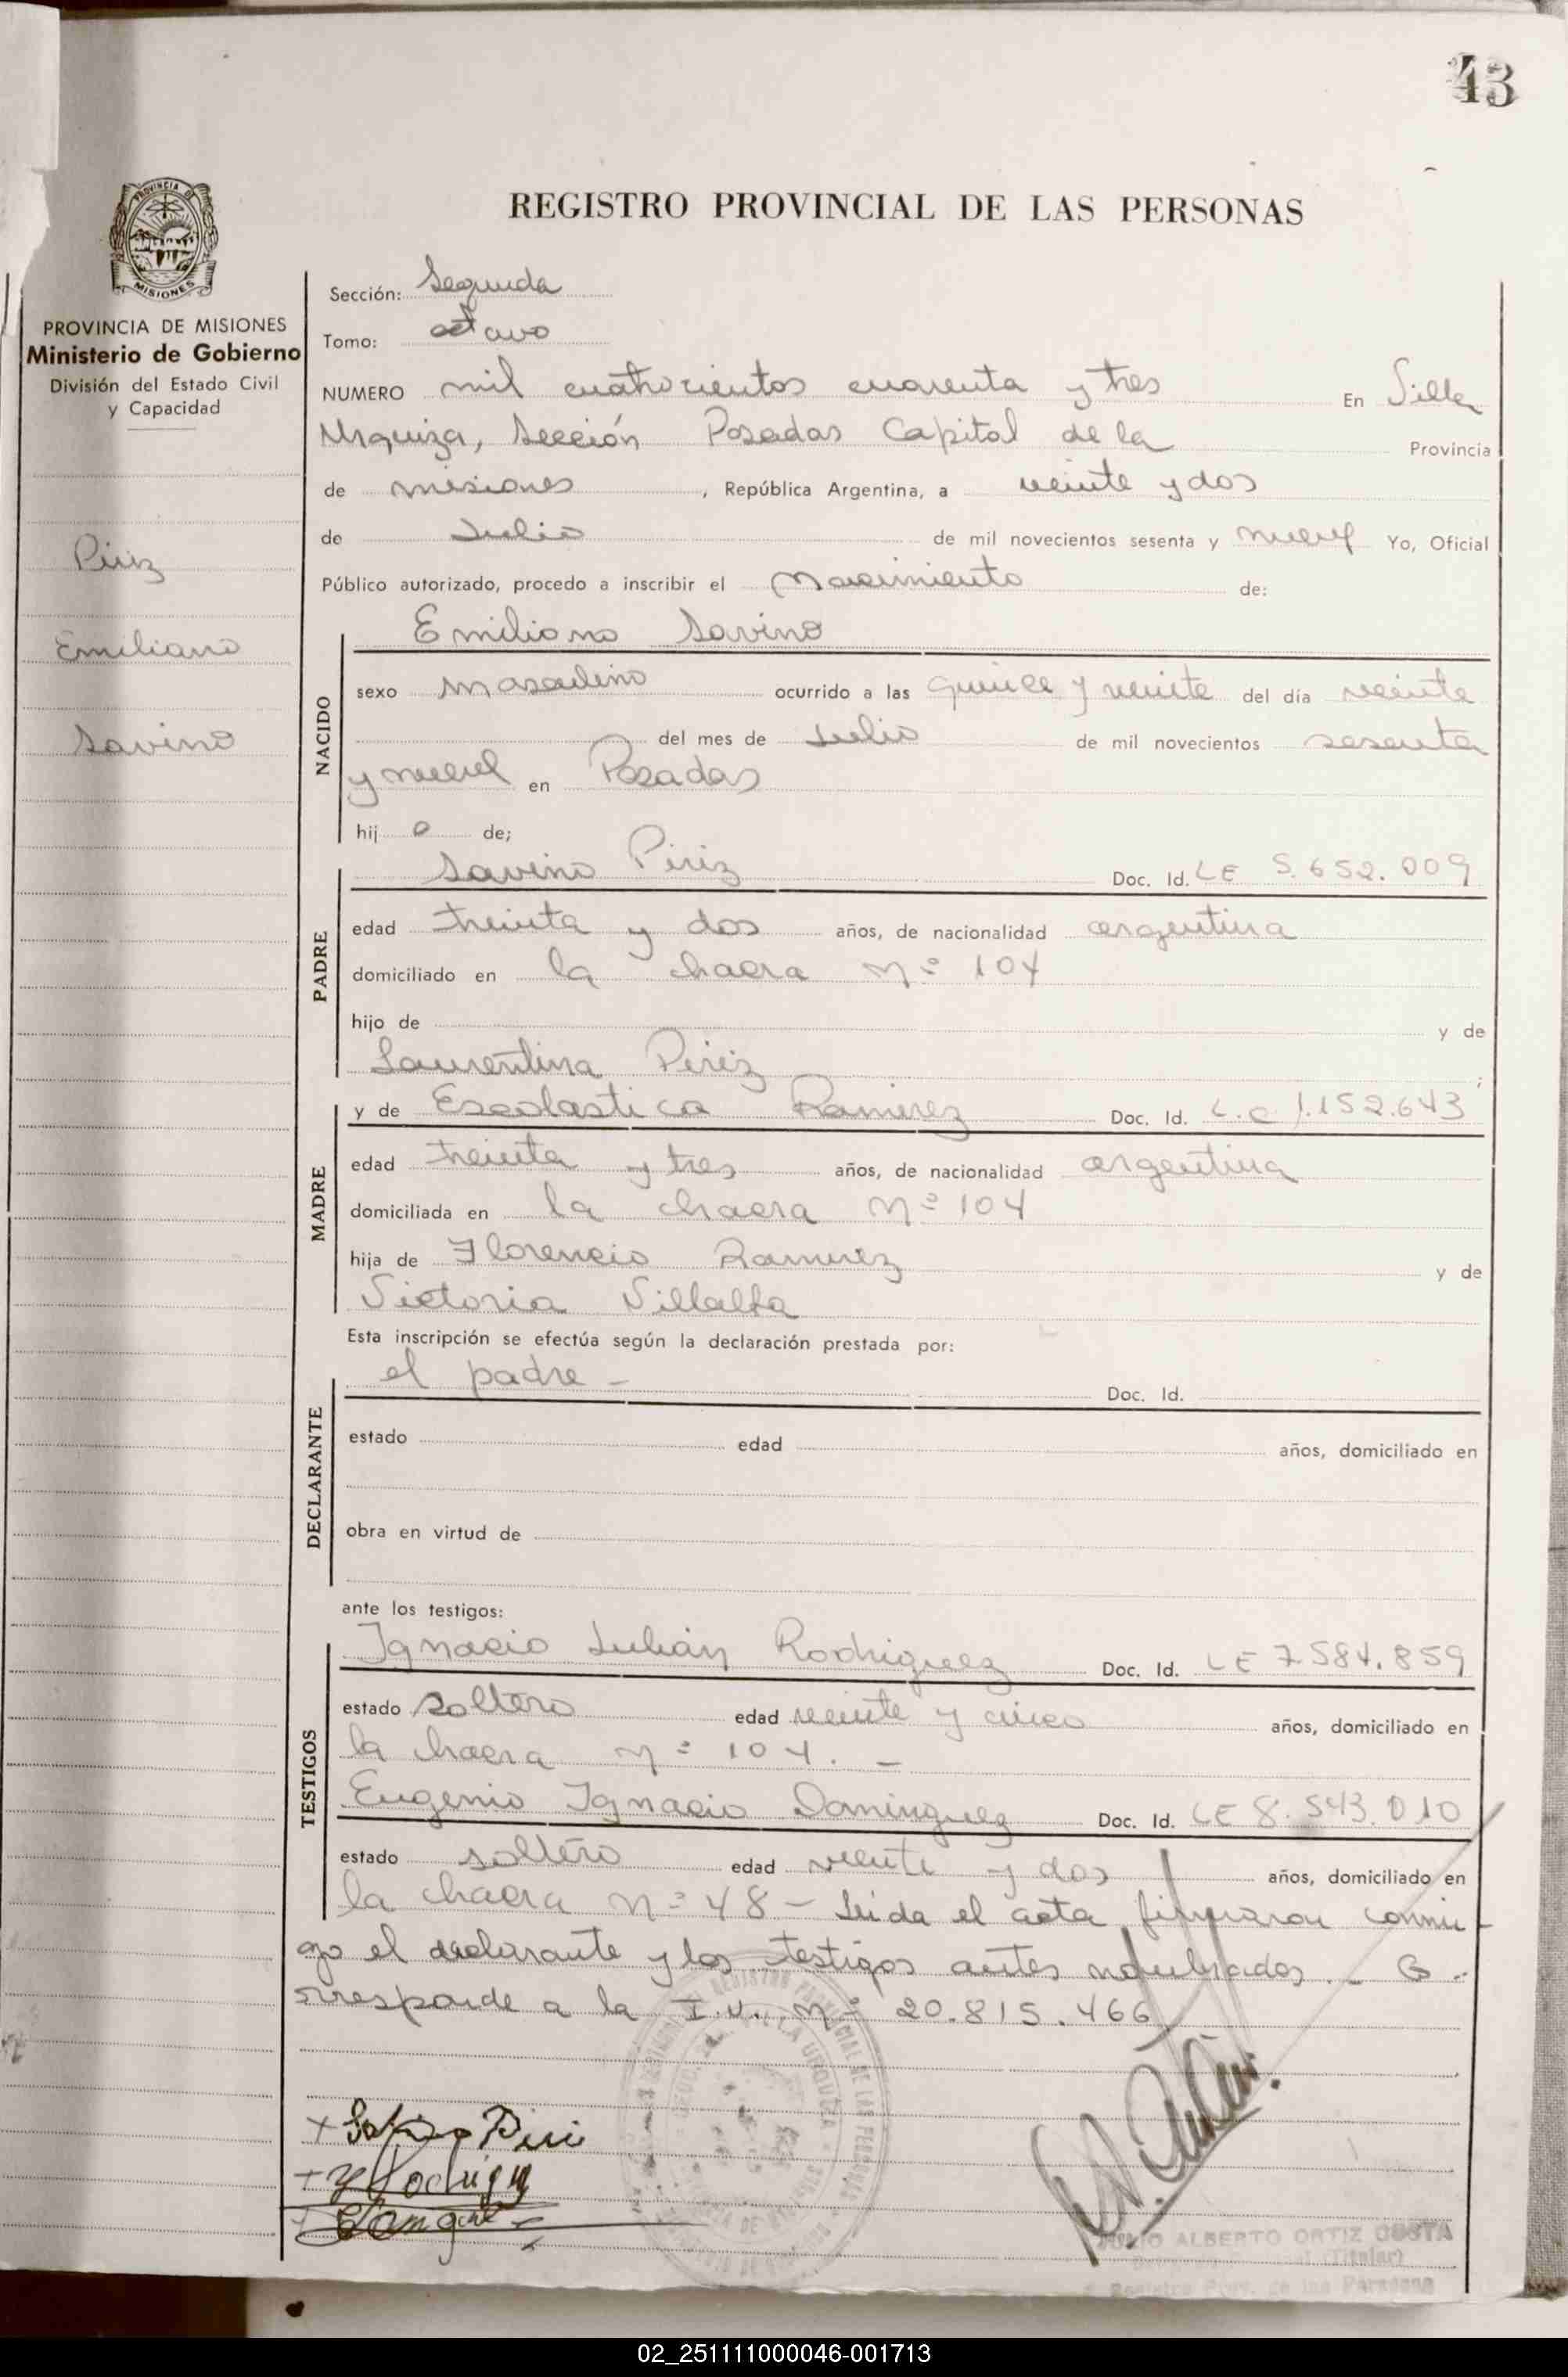 43
REGISTRO PROVINCIAL DE LAS PERSONAS
PROVINCIA DE MISIONES
Ministerio de Gobierno
División del Estado Civil
y Capacidad
Piriz
Emiliano
Savino
Sección: Segunda
Tomo: octavo
NUMERO mil cuatrocientos cuarenta y tres En Villa
Urquiza, Sección Posadas Capital de la Provincia
de misiones, República Argentina, a veinte y dos
de Julio de mil novecientos sesenta y nueve Yo, Oficial
Público autorizado, procedo a inscribir el nacimiento de:
Emiliano Savino
NACIDO
sexo masculino ocurrido a las quince y veinte del día veinte
del mes de Julio de mil novecientos sesenta
y nueve en Posadas
hij o de;
Savino Piriz Doc. Id. LE 5.652.009
PADRE
edad treinta y dos años, de nacionalidad argentina
domiciliado en la chacra nº 104
hijo de y de
Laurentina Piriz ;
y de Escolastica Ramirez Doc. Id. L.C 1.152.643
MADRE
edad treinta y tres años, de nacionalidad argentina
domiciliada en la chacra nº 104
hija de Florencio Ramirez y de
Victoria Villalba
Esta inscripción se efectúa según la declaración prestada por:
el padre - Doc. Id.
DECLARANTE
estado edad años, domiciliado en
obra en virtud de
ante los testigos:
Ignacio Julián Rodriguez Doc. Id. LE 7.584.859
TESTIGOS
estado soltero edad veinte y cinco años, domiciliado en
la chacra nº 104. -
Eugenio Ignacio Dominguez Doc. Id. LE 8.543.010
estado soltero edad veinte y dos años, domiciliado en
la chacra nº 48 - Leida el acta firmaron conmi-
go el declarante y los testigos antes nombrados. - Co-
rresponde a la I.N. nº 20.815.466
JULIO ALBERTO ORTIZ COSTA
(Titular)
Registro Prov. de las Personas
02_251111000046-001713